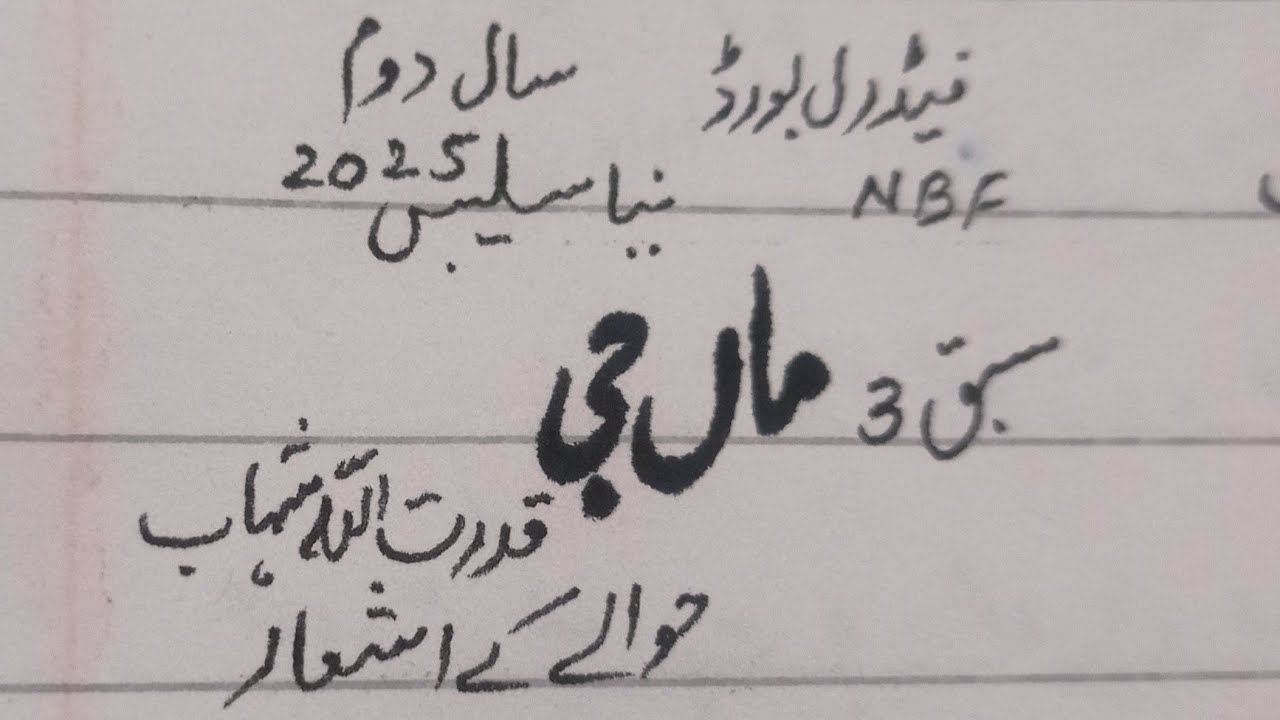 فیڈرل بورڈ سال دوم
NBF نیا سلیبس 2025
سبق 3 ماں جی
قدرت اللہ شہاب
حوالے کے اشعار